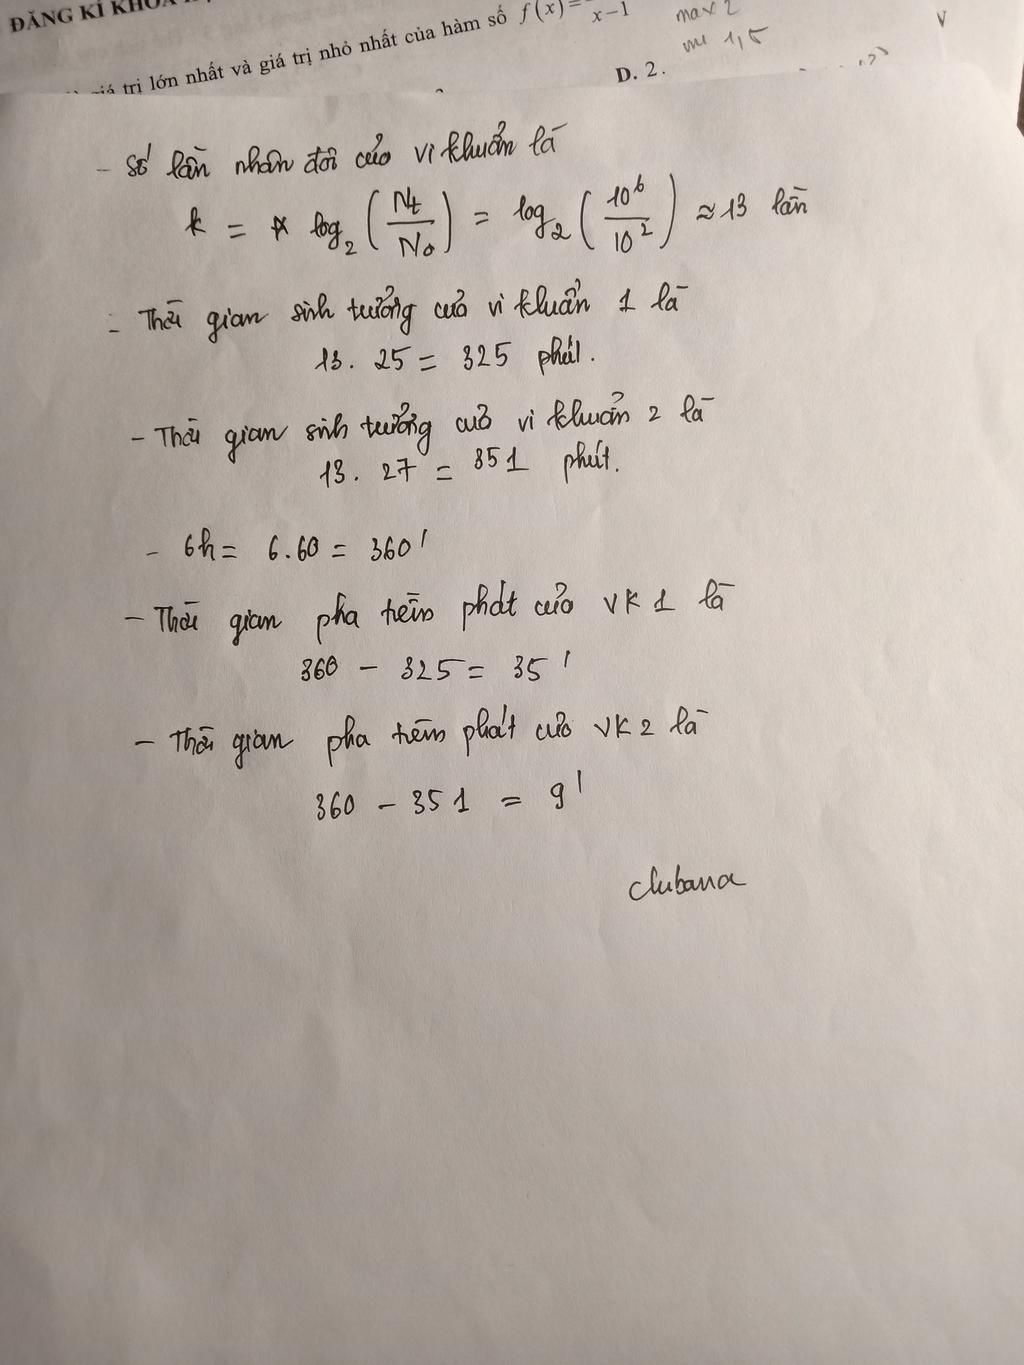 ĐĂNG KÍ KHOÁ
giá trị lớn nhất và giá trị nhỏ nhất của hàm số f(x)=
x-1
max 2
1,5
D. 2.
- Số lần nhân đôi của vi khuẩn là
k = log₂ (Nt/No) = log₂ (10⁶/10²) ≈ 13 lần
- Thời gian sinh trưởng của vi khuẩn 1 là
13. 25 = 325 phút.
- Thời gian sinh trưởng của vi khuẩn 2 là
13. 27 = 351 phút.
- 6h = 6.60 = 360'
- Thời gian pha tiềm phát của VK 1 là
360 - 325 = 35'
- Thời gian pha tiềm phát của VK 2 là
360 - 351 = 9'